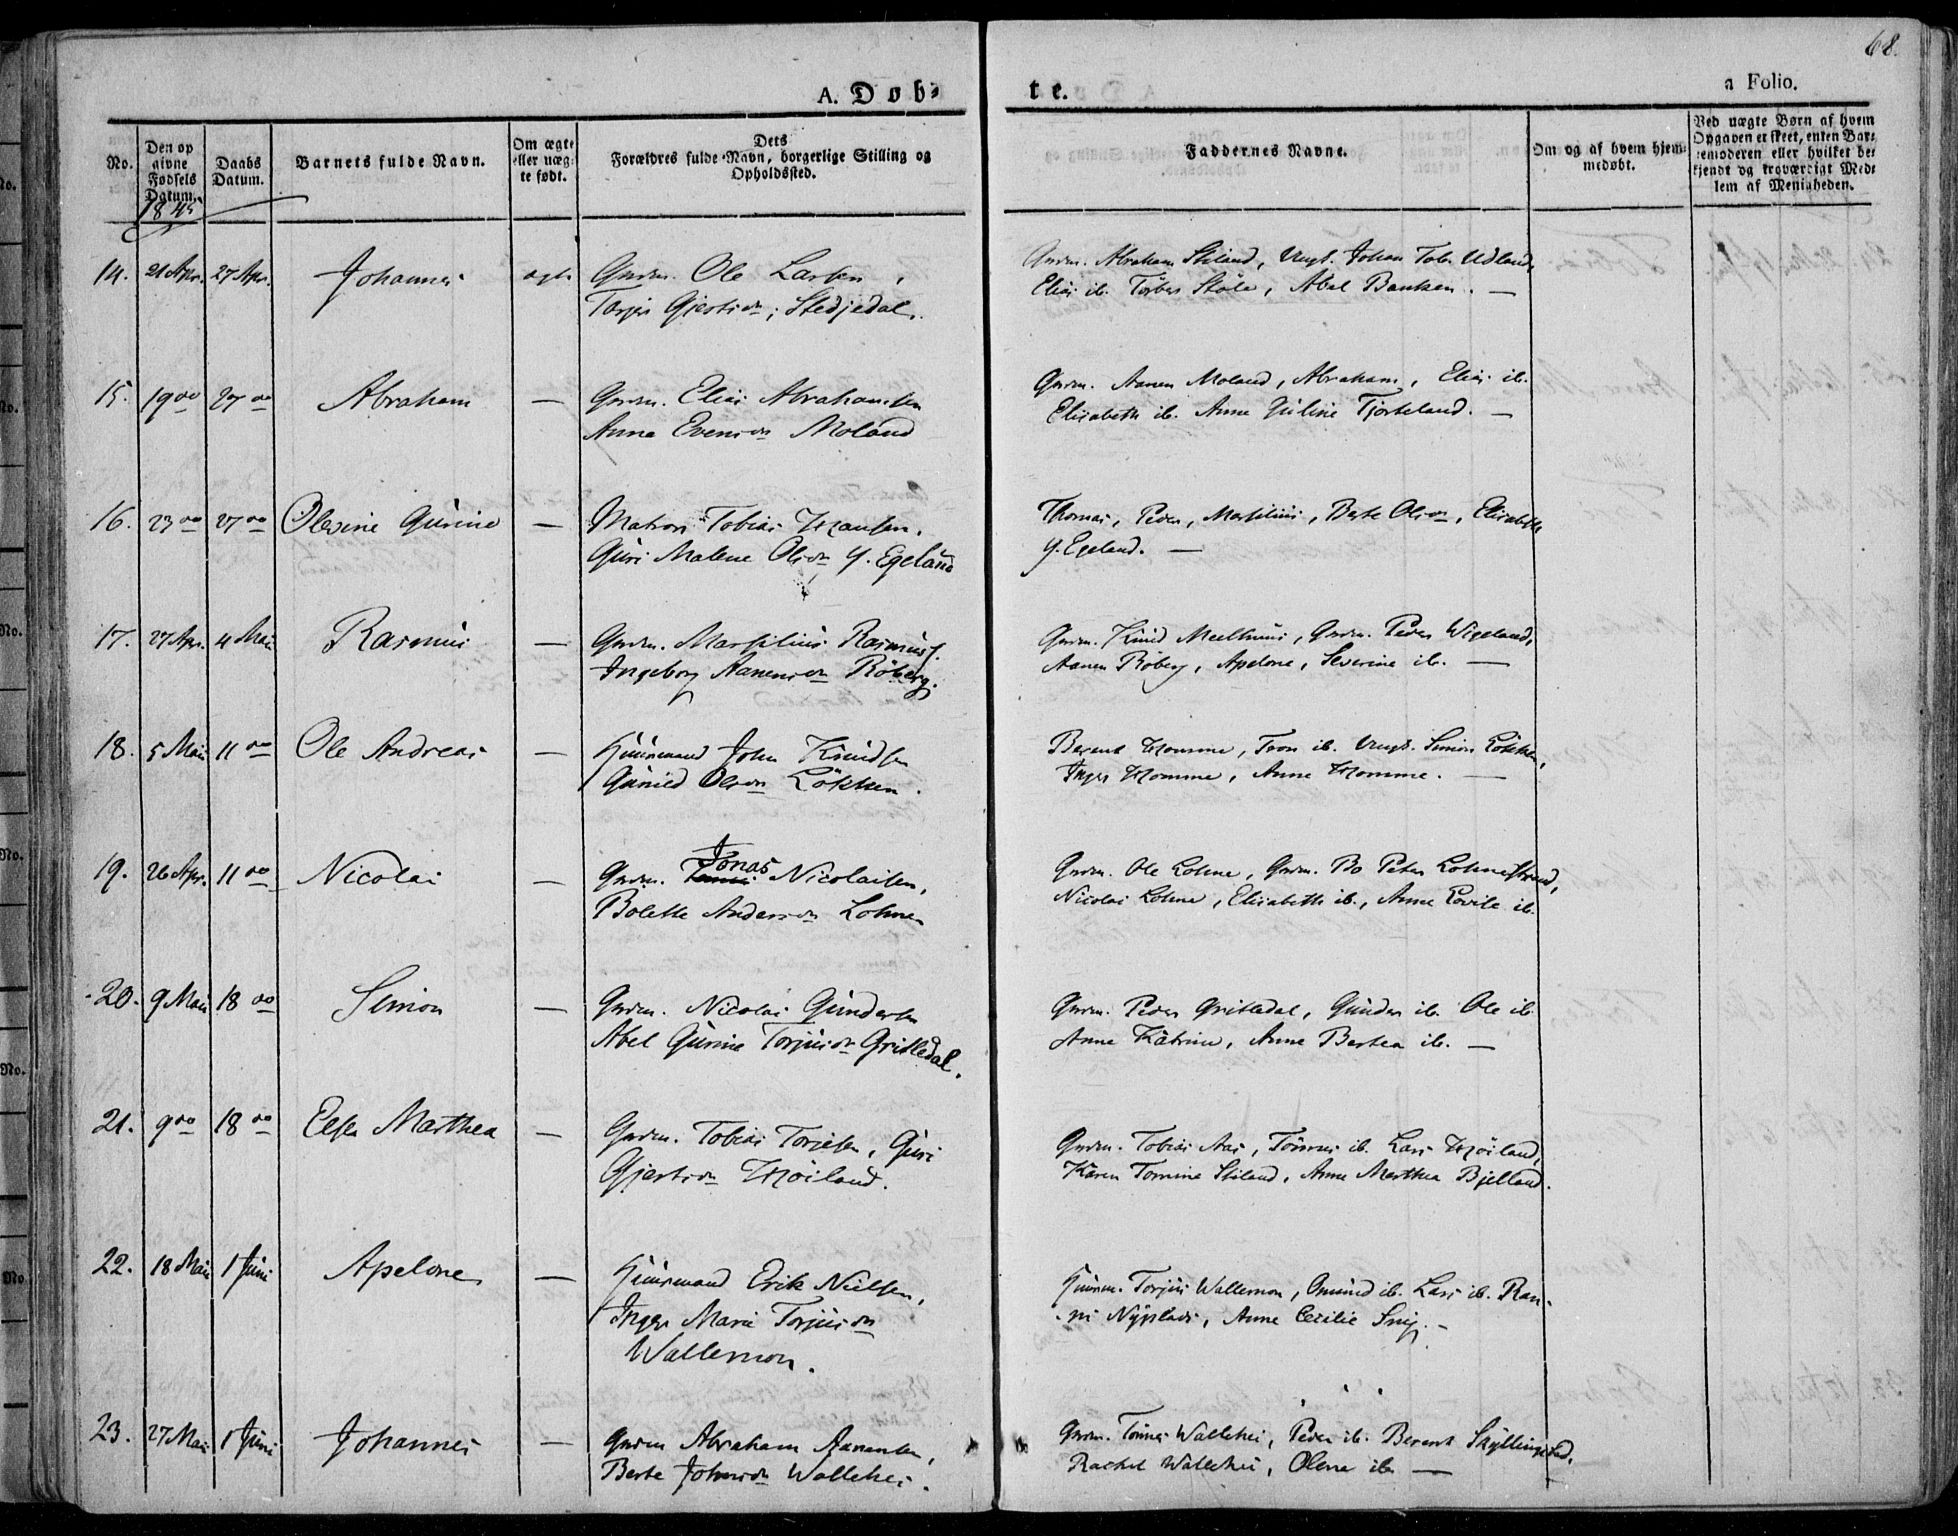 68.
A. Døb-
te.
a Folio.
No.
Den op
givne
Fødsels
Datum.
Daabs
Datum.
Barnets fulde Navn.
Om ægte
eller uæg-
te født.
Dets
Forældres fulde Navn, borgerlige Stilling og
Opholdssted.
Faddernes Navne.
Om og af hvem hjem-
medøbt.
Ved uægte Børn af hvem
Opgaven er skeet, enten Bar-
nemoderen eller hvilket be-
kjendt og troværdigt Med-
lem af Menigheden.
1845
14. 21 Apr. 27 Apr. Johannes ægte Grdm. Ole Larsen,
Gjertsdr; Stedjedal.
Grdm. Abraham Stiland, Ungk. Johan Tob. Udland,
Elias ib. Støle, Abel Banken. —
15. 19 do 27 do Abraham — Grdm. Elias Abrahamsen
Anna Evensdr Moland
Grdm. Aanen Moland, Abraham, Elias ib.
Elisabeth ib. Anne Juline Tjorteland. —
16. 23 do 27 do Olevine Gurine — Matros Tobias Hansen.
Guri Malene Olsdr Y. Egeland
Thomas, Peder, Marsilius, Berte Olsdr, Elisabeth
Y. Egeland. —
17. 27 Apr. 4 Mai Rasmus — Grdm. Marsilius Rasmus.
Ingeborg Aanensdr Röberg.
Grdm. Knud Meelhuus, Grdm. Peder Wigeland,
Aanen Röberg, Apelone, Severine ib. —
18. 5 Mai 11 do Ole Andreas — Huusmand John Knudsen
Gunild Olsdr Løkken.
Berent Homme, Tron ib. Ungk. Simon Løkken,
Inger Homme, Anne Homme. —
19. 26 Apr. 11 do Nicolai — Grdm. Jonas Nicolaisen,
Bolette Andersdr Lohne
Grdm. Ole Lohne, Grdm. Bo Peter Lohnestrand,
Nicolai Lohne, Elisabeth ib., Anne Lovise ib.
20. 9 Mai 18 do Simon — Grdm. Nicolai Gundersen
Abel Gurine Torjusdr Gritledal.
Grdm. Peder Gritledal, Gunder ib. Ole ib.
Anne Katrine, Anne Bertea ib. —
21. 9 do 18 do Else Marthea — Grdm. Tobias Torjesen, Guri
Gjertsdr Høiland.
Grdm. Tobias Aas, Tønnes ib. Lars Høiland,
Karen Tomine Stiland, Anne Marthea Bjelland.
22. 18 Mai 1 Juni Apelone — Huusmand Erik Nielsen,
Inger Marie Torjusdr
Wallemon.
Huusm. Torjus Wallemon, Omund ib. Lars ib. Ran-
Nyplads, Anne Cecilie Snig. -
23. 27 Mai 1 Juni Johannes — Grdm Abraham Aanensen,
Berte Johnsdr Wallehei.
Grdm. Tønnes Wallehei, Peder ib. Berent Skyllingstad,
Rachel Wallehei, Olene ib. —